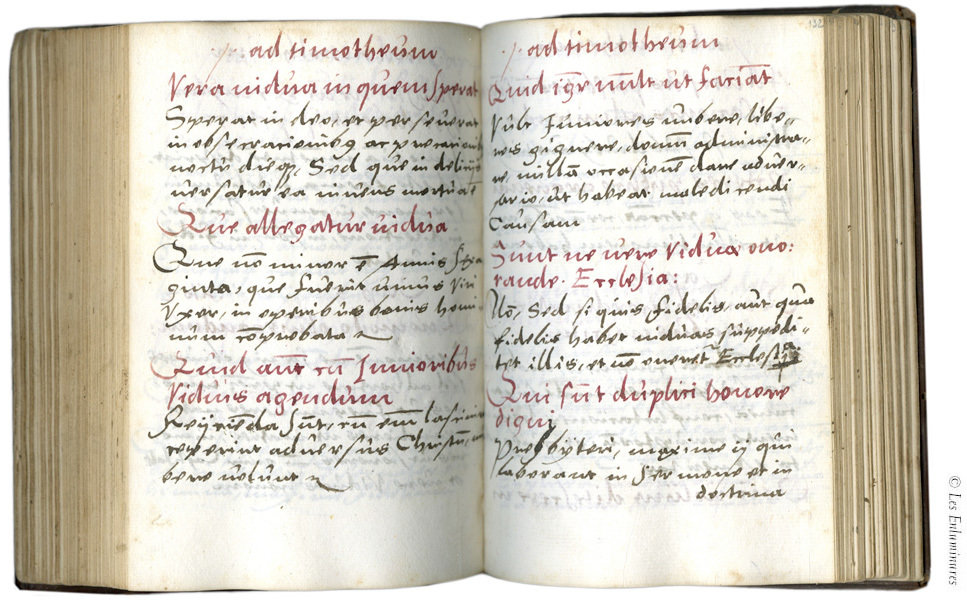 j. ad timotheum
Vera uidua in quem sperat
Sperat in deo, et perseuerat
in obsecrationibq ac precationib
noctu dieq, Sed que in delicijs
uersatur ea viuens mortua ē
Que allegatur uidua
Que nō minor ē Annis Sexa
ginta, que fuerit unius Viri
Vxor, in operibus bonis homi
num cōprobata
Quid aūt cū Iunioribus
Viduis agendum
Reijciēda sūt, cū em̄ lasciuire
ceperint aduersus Christū, nu
bere uolunt
j. ad timotheum
132
Quid igr̄ uult ut faciāt
Vult Iuniores nubere, libe-
ros gignere, domum administra-
re nullā occasionē dare aduer-
sario, ut habeat maledicendi
Causam
Sunt ne uere Viduæ ono:
rande Ecclesia:
Nō, Sed si quis fidelis, aut qua
fidelis habet uiduas suppedi-
tet illis, et nō oneret Ecclesia
Qui sūt duplici honore
digni
Presbyteri, maxime ij qui
laborant in sermone et in
doctrina
© Les Enluminures